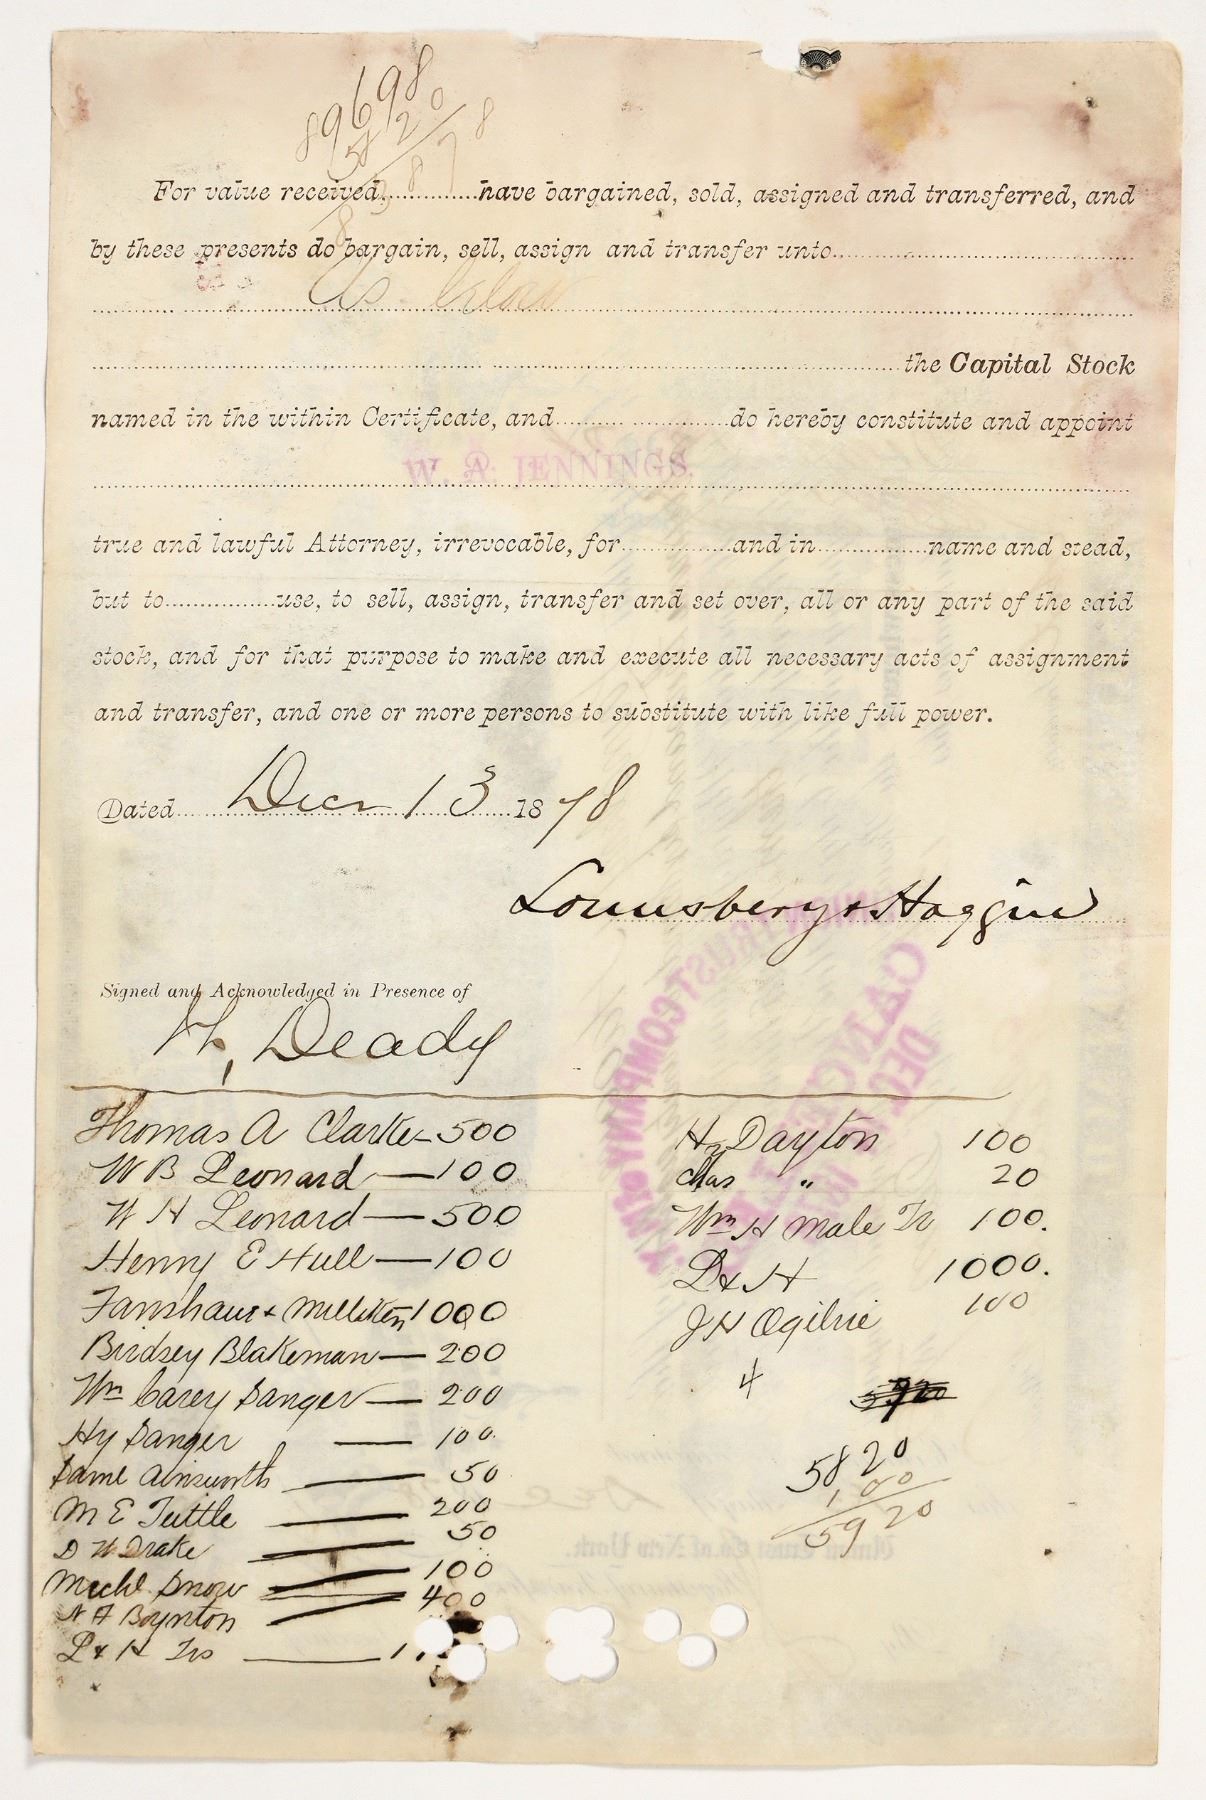 89698
5820
For value received, have bargained, sold, assigned and transferred, and
by these presents do bargain, sell, assign and transfer unto
As below
the Capital Stock
named in the within Certificate, and do hereby constitute and appoint
W. A. JENNINGS.
true and lawful Attorney, irrevocable, for and in name and stead,
but to use, to sell, assign, transfer and set over, all or any part of the said
stock, and for that purpose to make and execute all necessary acts of assignment
and transfer, and one or more persons to substitute with like full power.
Dated Decr 13 1878
Lounsbery & Haggin
Signed and Acknowledged in Presence of
Deady
Thomas A Clarke — 500
W B Leonard — 100
W H Leonard — 500
Henry E Hull — 100
Fanshawe & Milliken 1000
Birdsey Blakeman — 200
Wm Carey Sanger — 200
Hy Sanger — 100.
Saml Ainsworth — 50
M E Tuttle — 200
D W Drake — 50
Michl Snow — 100
N A Boynton — 400
L & H Trs — 1,
Hy Dayton 100
Chas " 20
Wm H Male Tr 100.
L & H 1000.
J H Ogilvie 100
4
5920
5820
100
5920
UNION TRUST COMPANY OF N.Y.
CANCELLED
DEC
Union Trust Co. of New York.